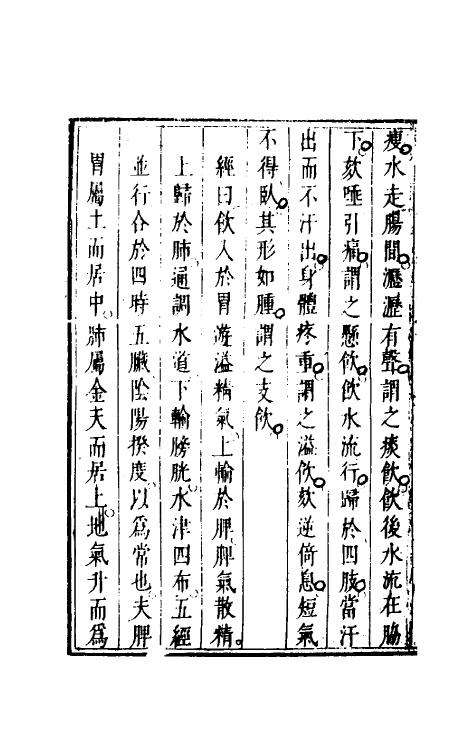 瘦水走腸間瀝瀝有聲謂之痰飲飲後水流在脇
下欬唾引痛謂之懸飲飲水流行歸於四肢當汗
出而不汗出身體疼重謂之溢飲欬逆倚息短氣
不得臥其形如腫謂之支飲
經曰飲入於胃遊溢精氣上輸於脾脾氣散精
上歸於肺通調水道下輸膀胱水津四布五經
並行合於四時五臟陰陽揆度以為常也夫脾
胃屬土而居中肺屬金天而居上地氣升而為